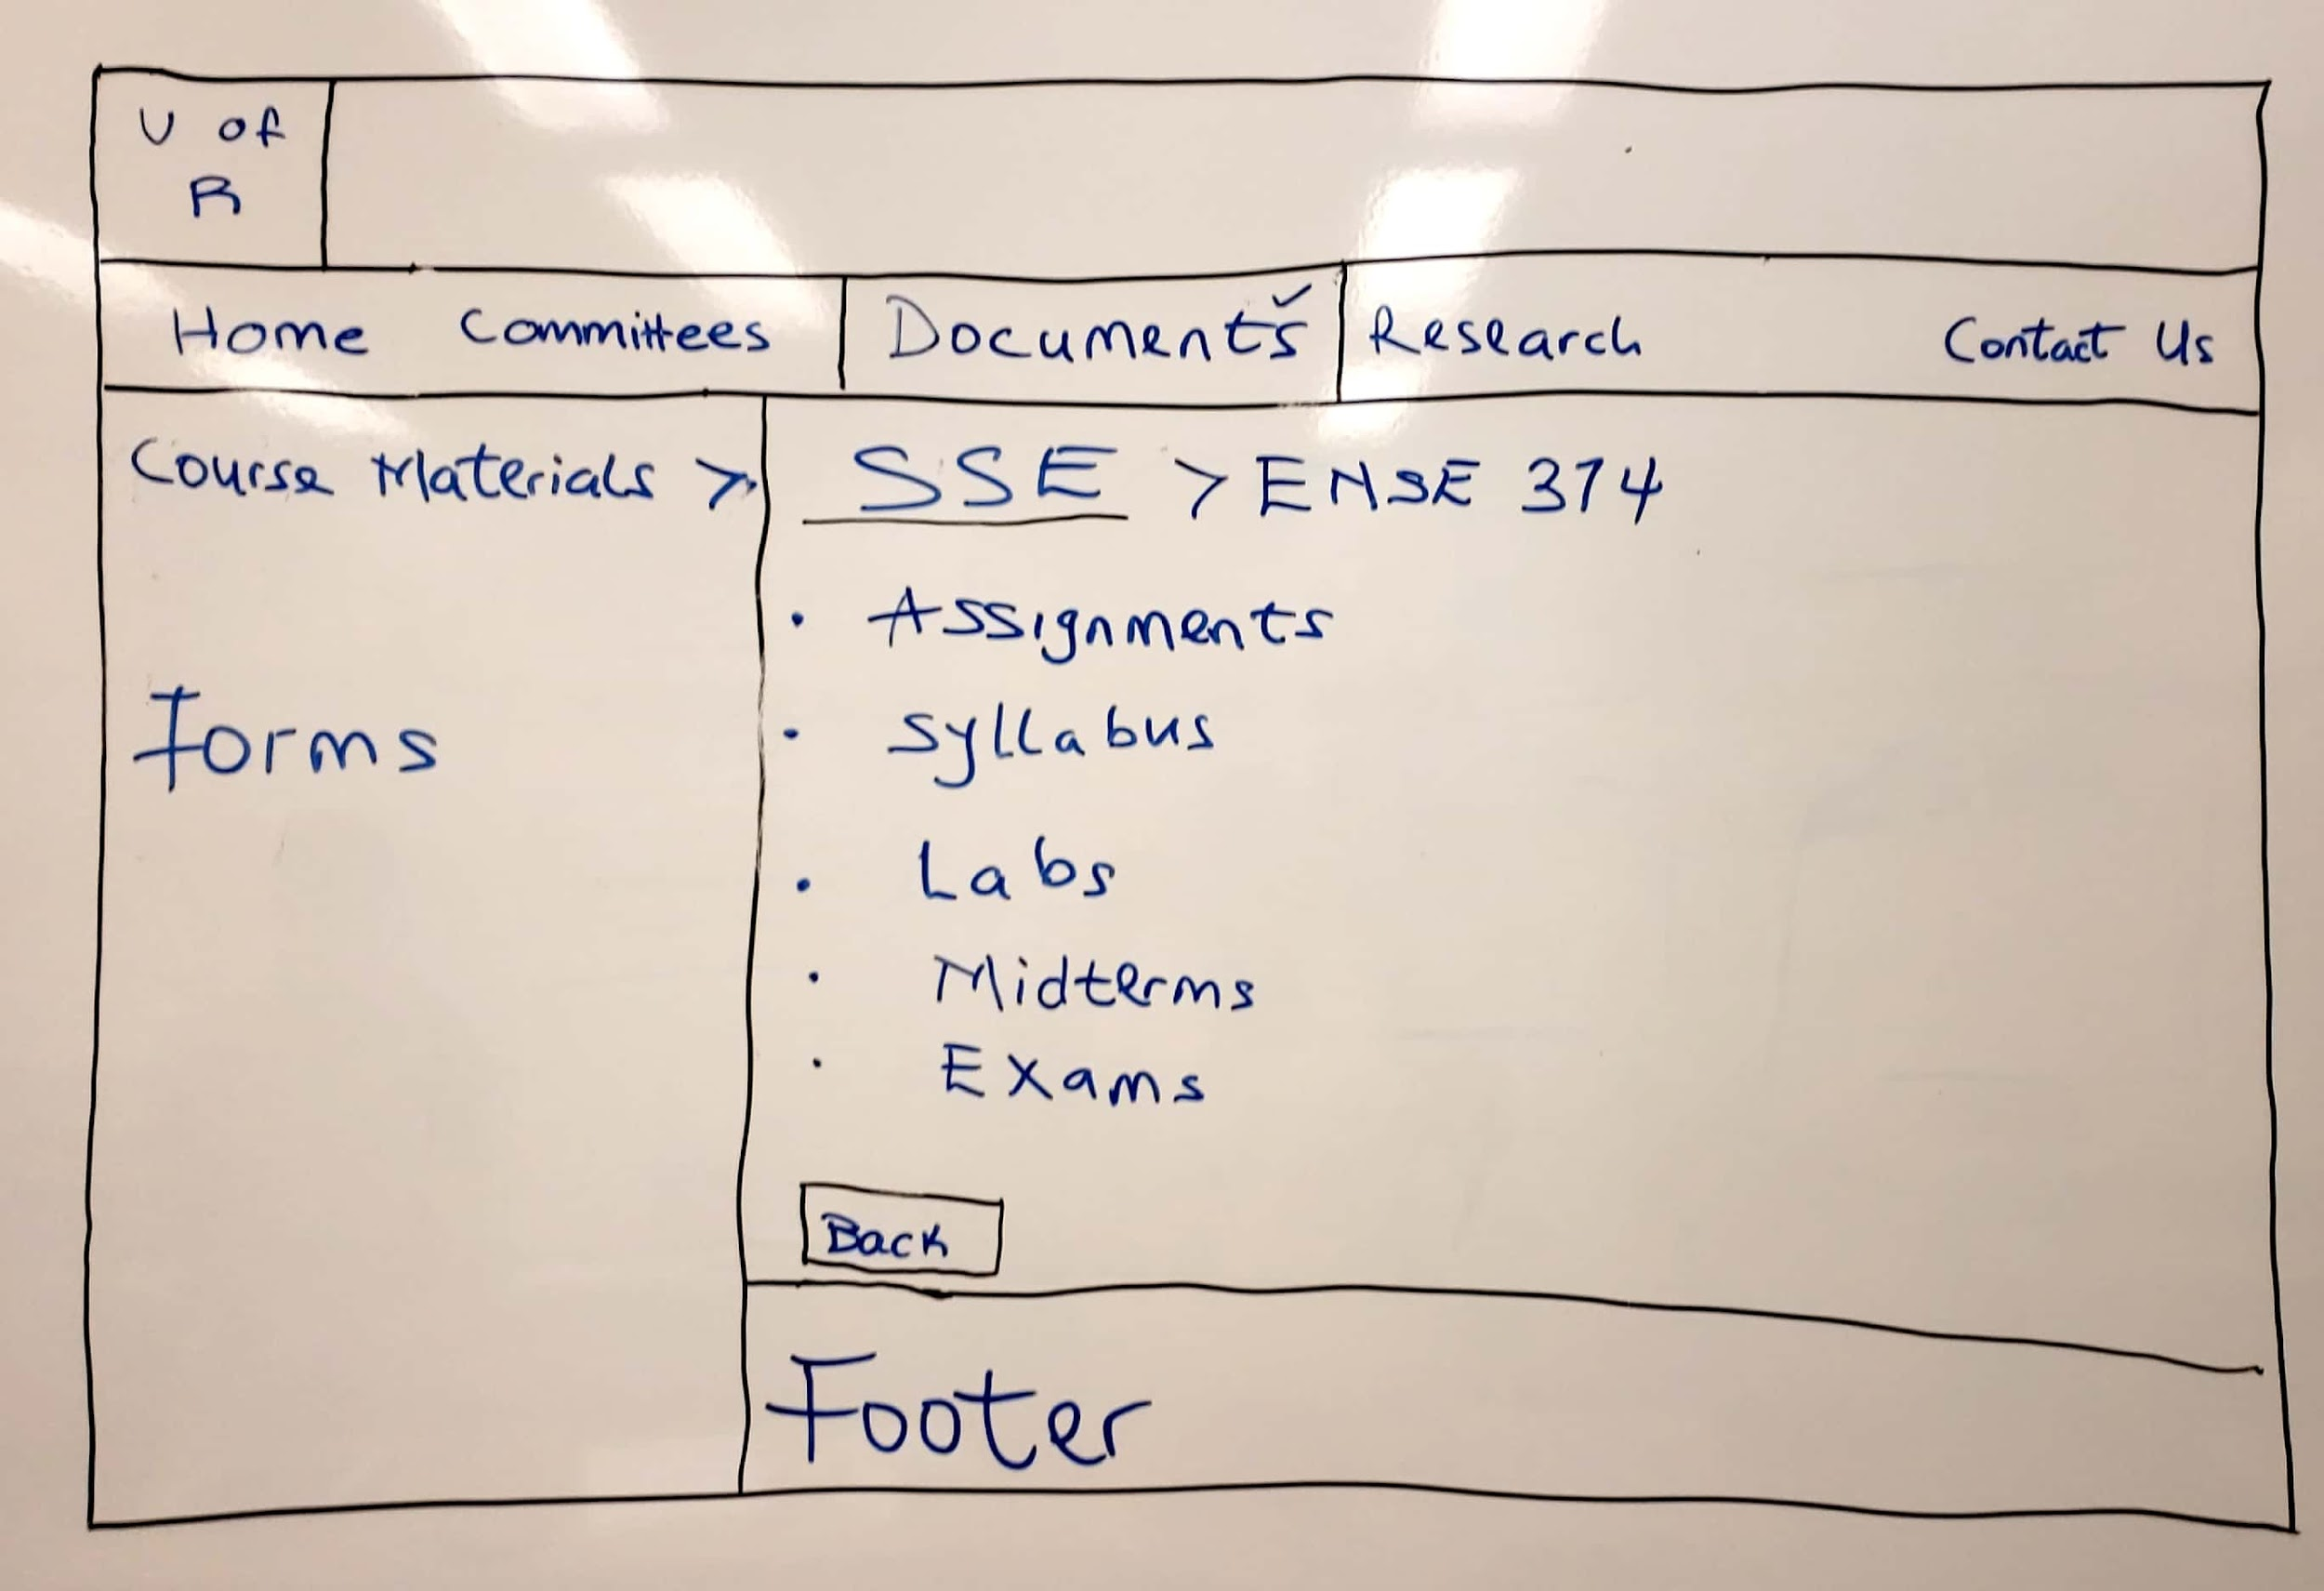 U of
R
Home Committees Documents Research Contact Us
Course Materials > SSE > ENSE 374
• Assignments
Forms
• Syllabus
• Labs
• Midterms
• Exams
Back
Footer